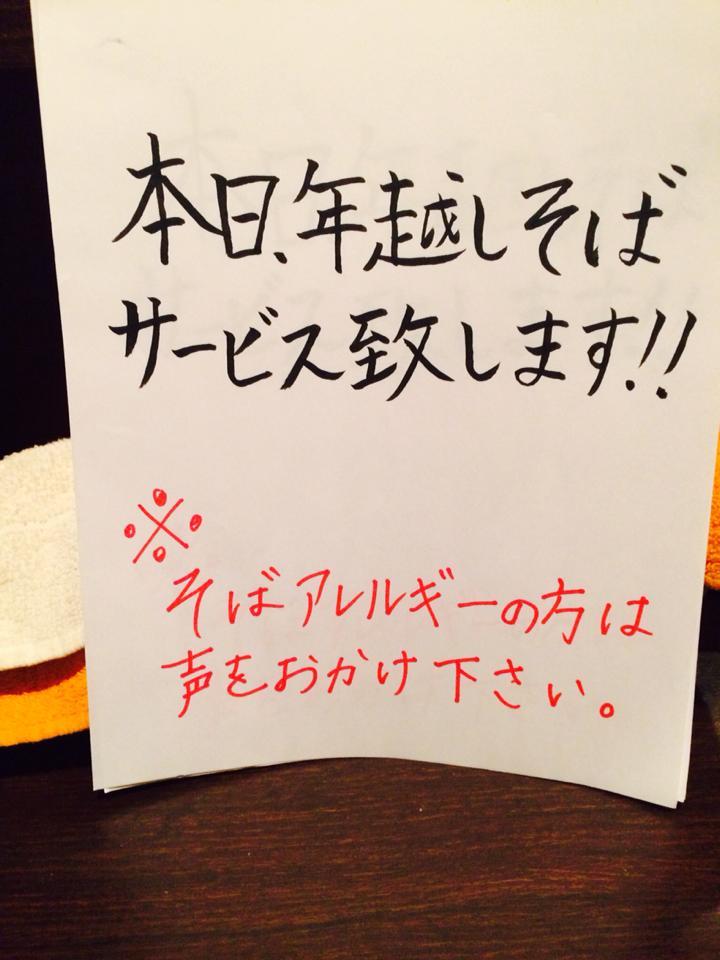 本日、年越しそば
サービス致します!!
※
そばアレルギーの方は
声をおかけ下さい。